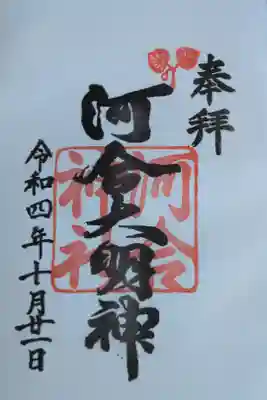 奉拝
河合大明神
河合神社
令和四年十月廿一日